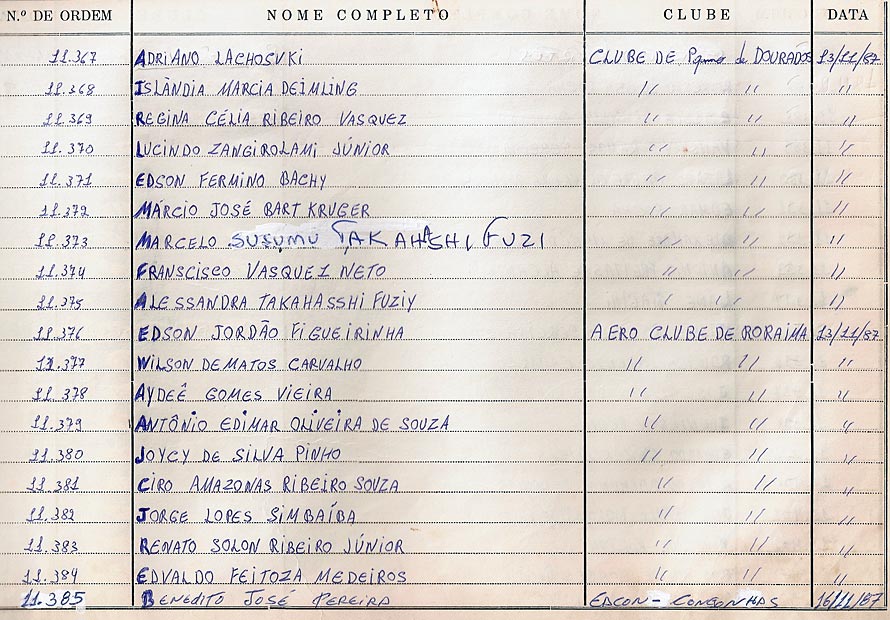 N.º DE ORDEM NOME COMPLETO CLUBE DATA
11.367 ADRIANO LACHOSVKI CLUBE DE de DOURADOS 13/11/87
11.368 ISLÀNDIA MARCIA DEIMLING " " "
11.369 REGINA CÉLIA RIBEIRO VASQUEZ " " "
11.370 LUCINDO ZANGIROLAMI JÚNIOR " " "
11.371 EDSON FERMINO BACHY " " "
11.372 MÁRCIO JOSÉ BART KRUGER " " "
11.373 MARCELO SUSUMU TAKAHASHI FUZI " " "
11.374 FRANSCISCO VASQUEZ NETO " " "
11.375 ALESSANDRA TAKAHASSHI FUZIY " " "
11.376 EDSON JORDÃO FIGUEIRINHA AERO CLUBE DE RORAIMA 13/11/87
11.377 WILSON DE MATOS CARVALHO " " "
11.378 AYDEÊ GOMES VIEIRA " " "
11.379 ANTÔNIO EDIMAR OLIVEIRA DE SOUZA " " "
11.380 JOYCY DE SILVA PINHO " " "
11.381 CIRO AMAZONAS RIBEIRO SOUZA " " "
11.382 JORGE LOPES SIMBAÍBA " " "
11.383 RENATO SOLON RIBEIRO JÚNIOR " " "
11.384 EDVALDO FEITOZA MEDEIROS " " "
11.385 BENEDITO JOSÉ PEREIRA EDCON - CONGONHAS 16/11/87